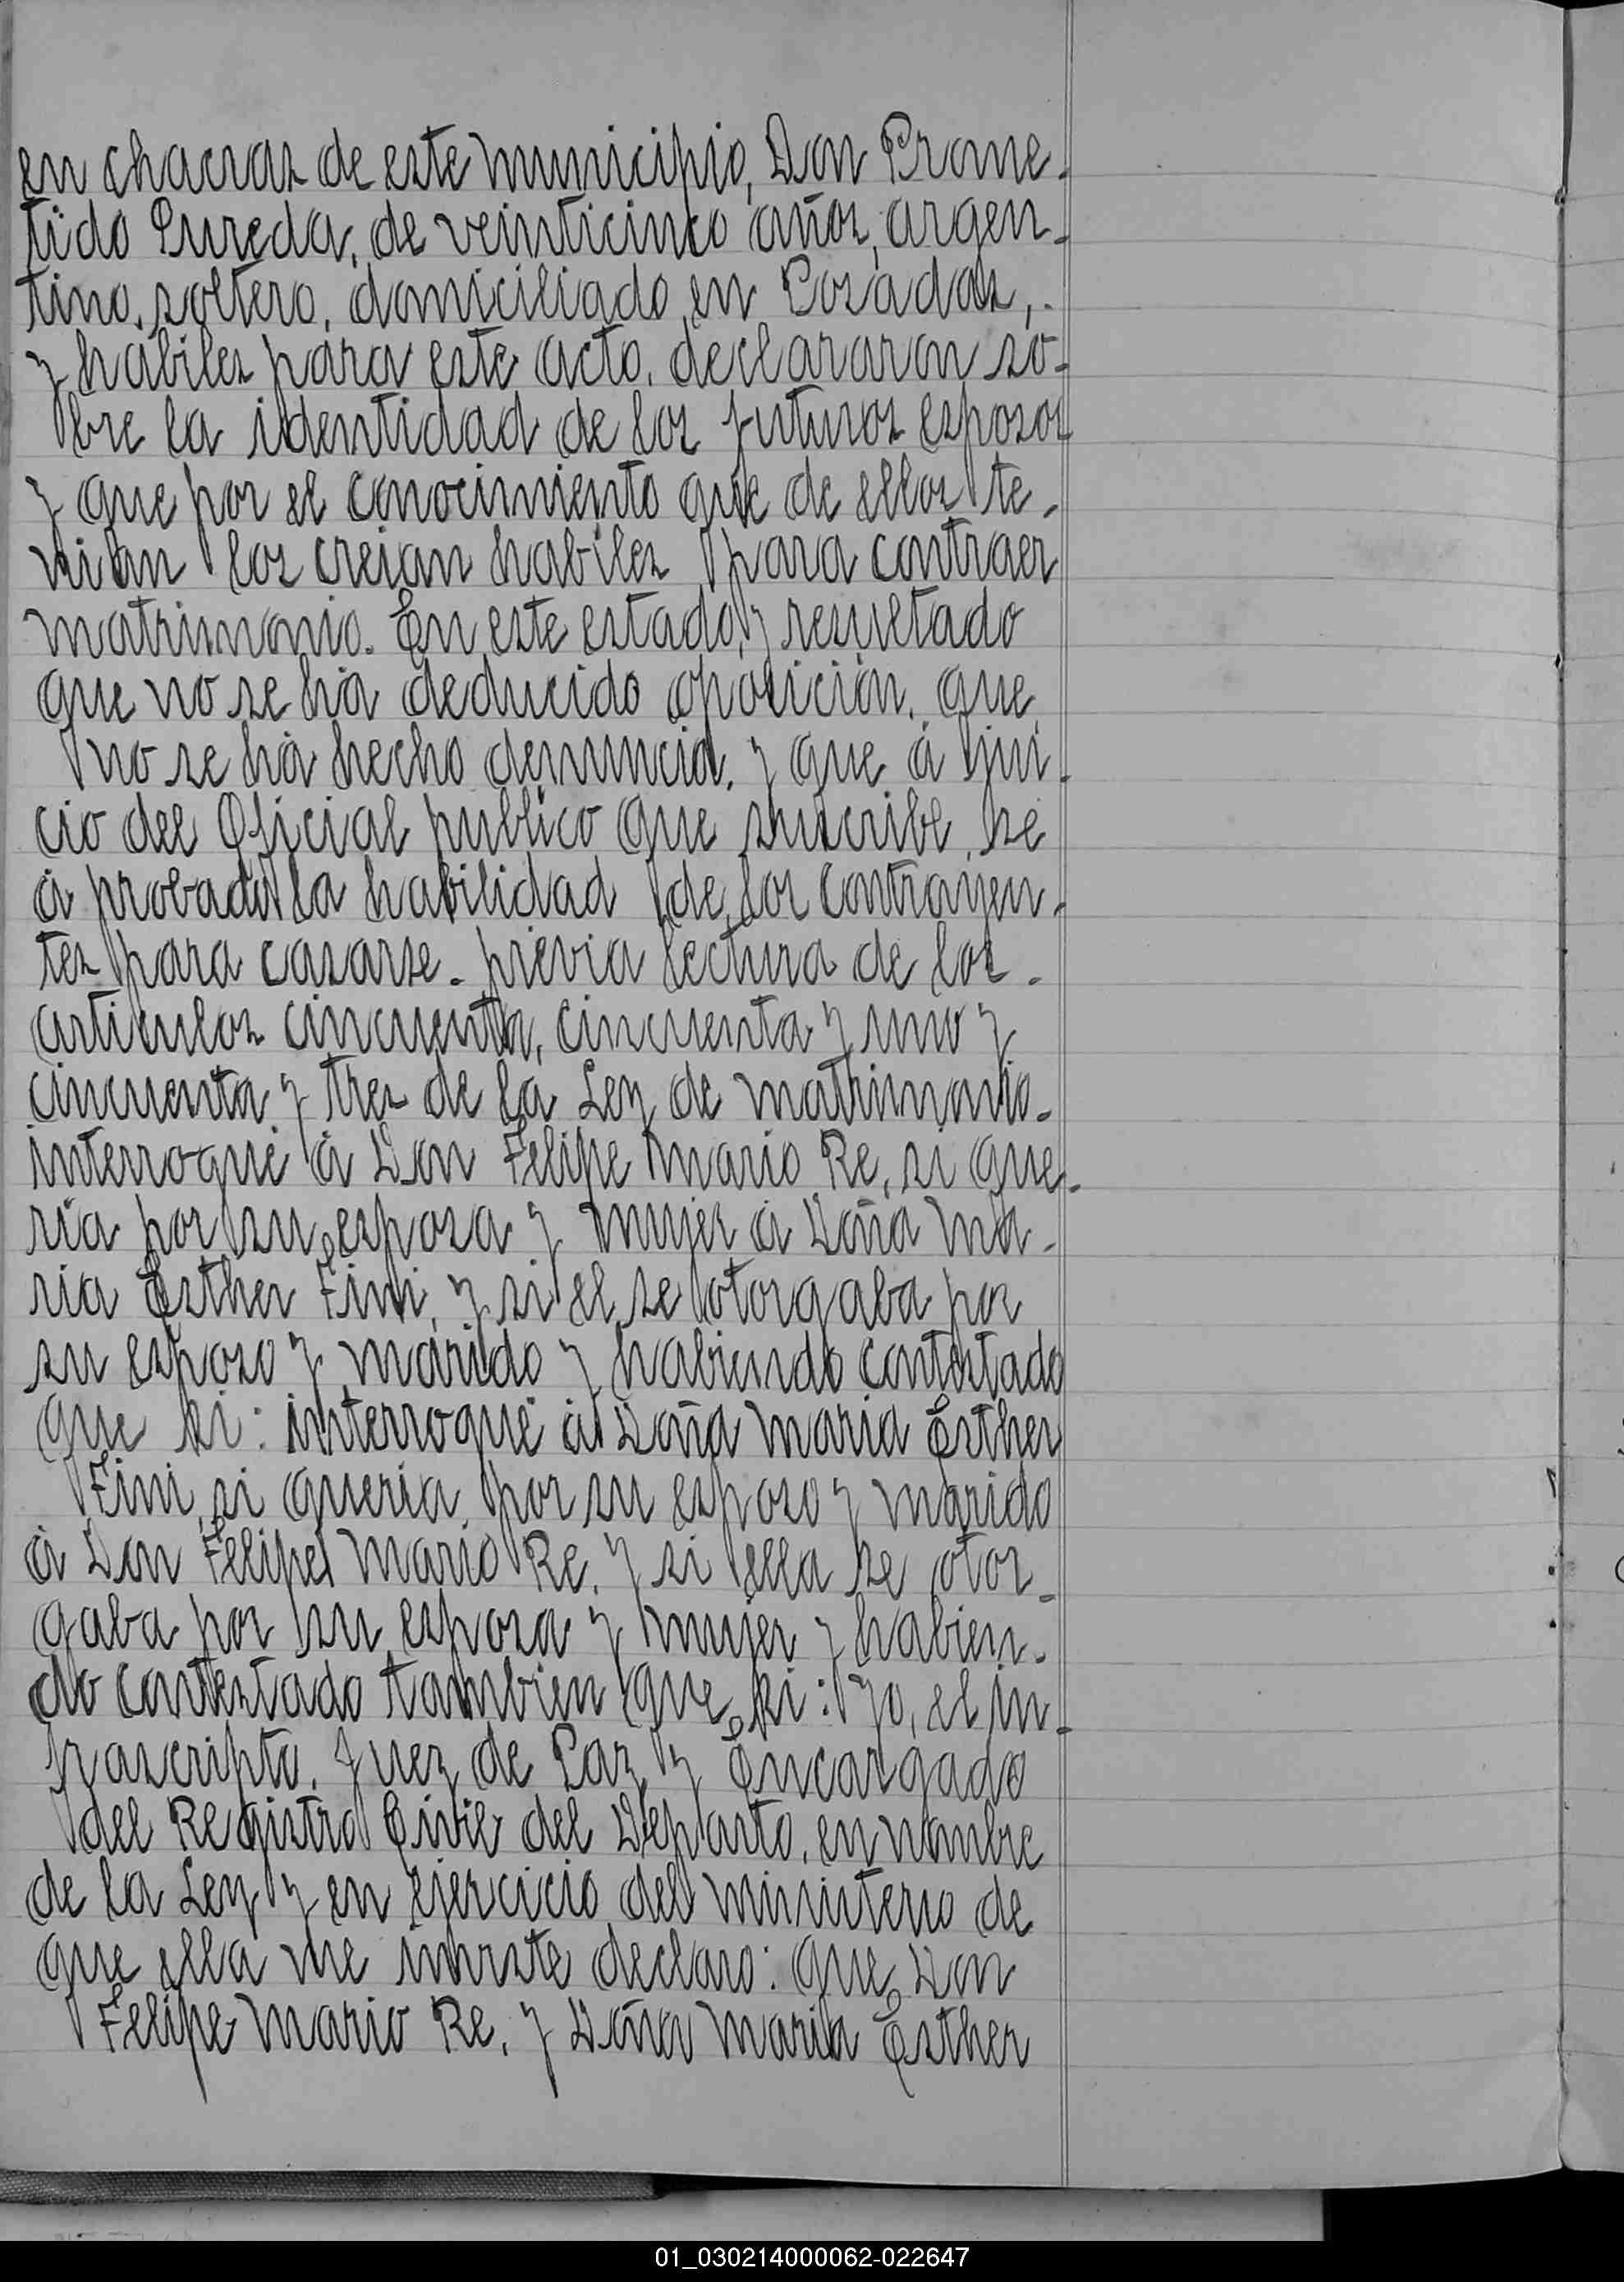 en chacras de este municipio, Don Prome-
tido Pureda, de veinticinco años, argen-
tino, soltero, domiciliado en Posadas,.
y habiles para este acto, declararon so-
bre la identidad de los futuros esposos
y que por el conocimiento que de ellos te-
nian los creian habiles para contraer
matrimonio. En este estado, y resultado
que no se há deducido oposición, que
no se há hecho denuncia, y que á jui-
cio del Oficial publico que suscribe, se
á probado la habilidad de los contrayen-
tes para casarse - prévia lectura de los -
articulos cincuenta, cincuenta y uno y
cincuenta y tres de la Ley de matrimonio -
interrogué á Don Felipe Mario Re, si que-
ria por su esposa y mujer á Doña Ma-
ria Esther Fini, y si el se otorgaba por
su esposo y marido y habiendo contestado
que si: interrogué á Doña Maria Esther
Fini, si queria por su esposo y marido
á Don Felipe Mario Re, y si ella se otor-
gaba por su esposa y mujer y habien-
do contestado tambien que si: Yo, el in-
frascripto, Juez de Paz y Encargado
del Registro Civil del Departo, en nombre
de la Ley y en ejercicio del ministerio de
que ella me inviste declaro: que Don
Felipe Mario Re, y Doña Maria Esther
01_030214000062-022647